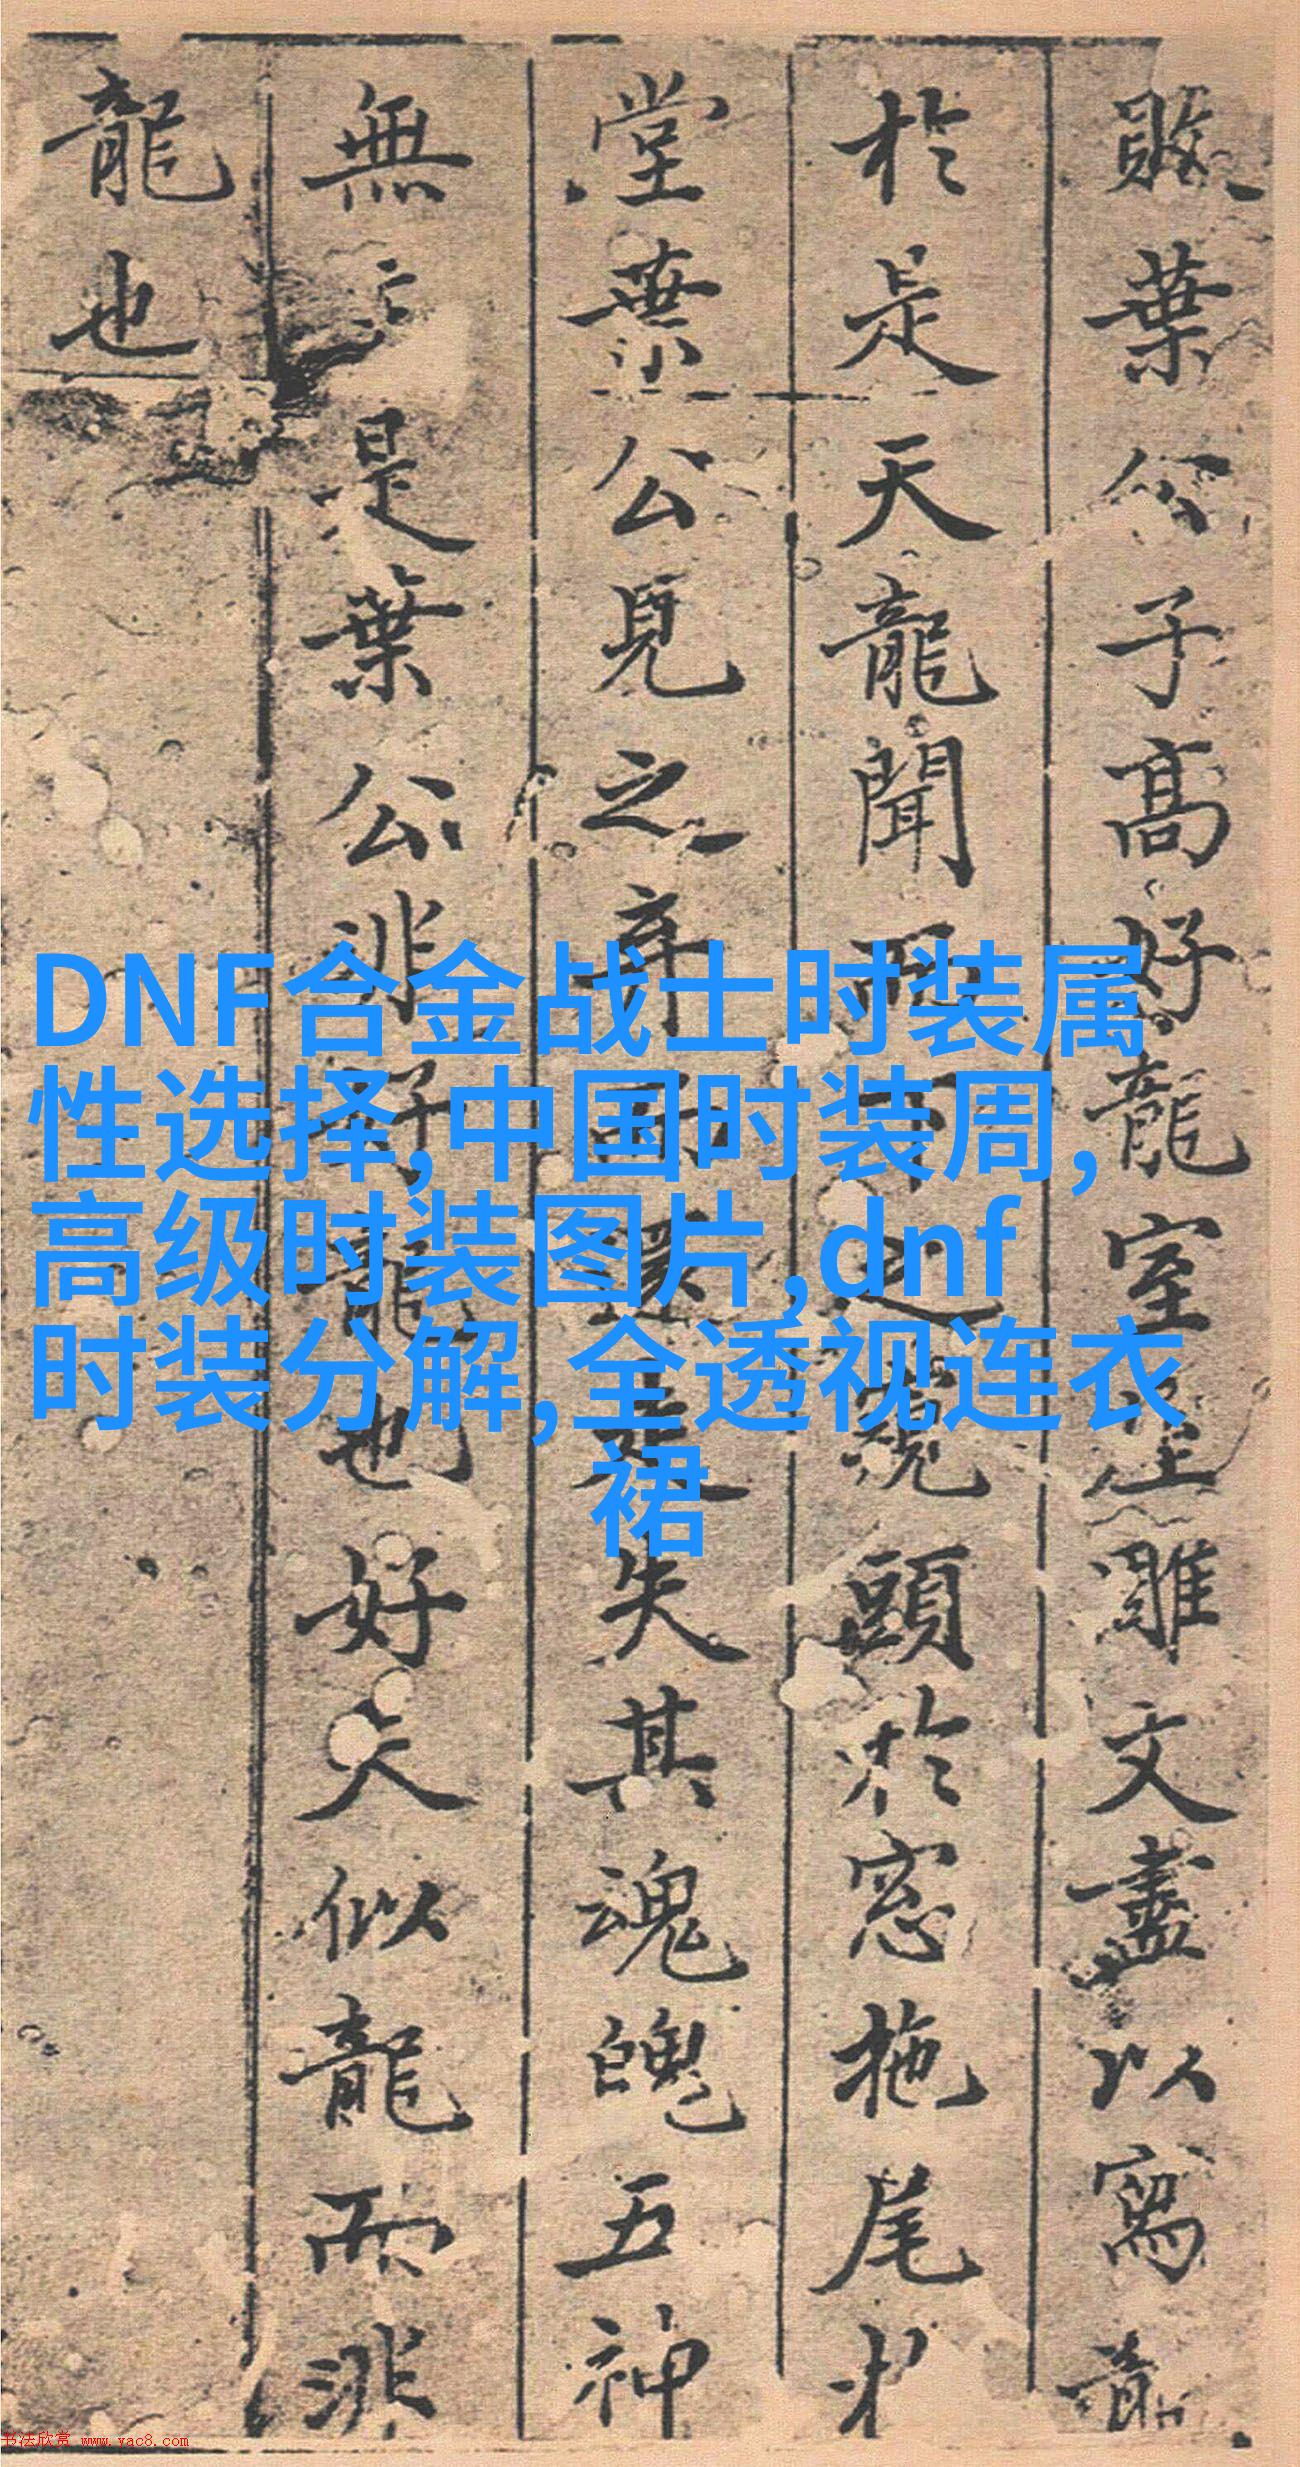 敗葉公子高好龍室雕文盡以寫龍
於是天龍聞而下之窺頭於窓拖尾於
堂葉公見之弃而還走失其魂魄五神
無主是葉公非好龍也好夫似龍而非
龍也
DNF合金战士时装属
性选择,中国时装周,
高级时装图片,dnf
时装分解,全透视连衣
裙
书法欣赏 www.yac8.com